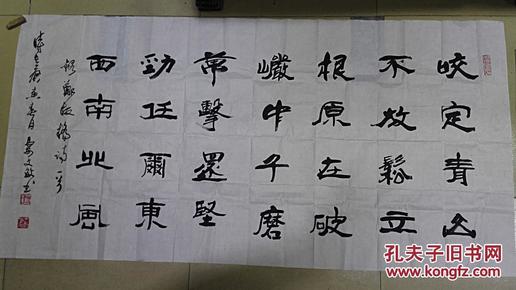 咬定青山
不放鬆立
根原在破
巖中千磨
萬擊還堅
勁任爾東
西南北風
錄鄭板橋詩一首
孔夫子旧书网
www.kongfz.com